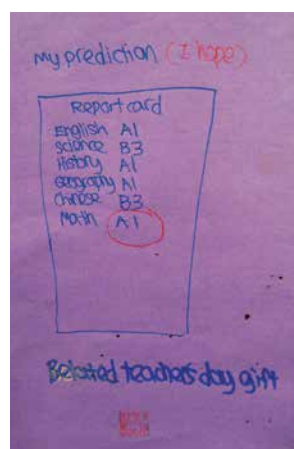 my prediction (I hope)
Report card
English A1
Science B3
History A1
Geography A1
Chinese B3
Math A1
Belated teachers' day gift